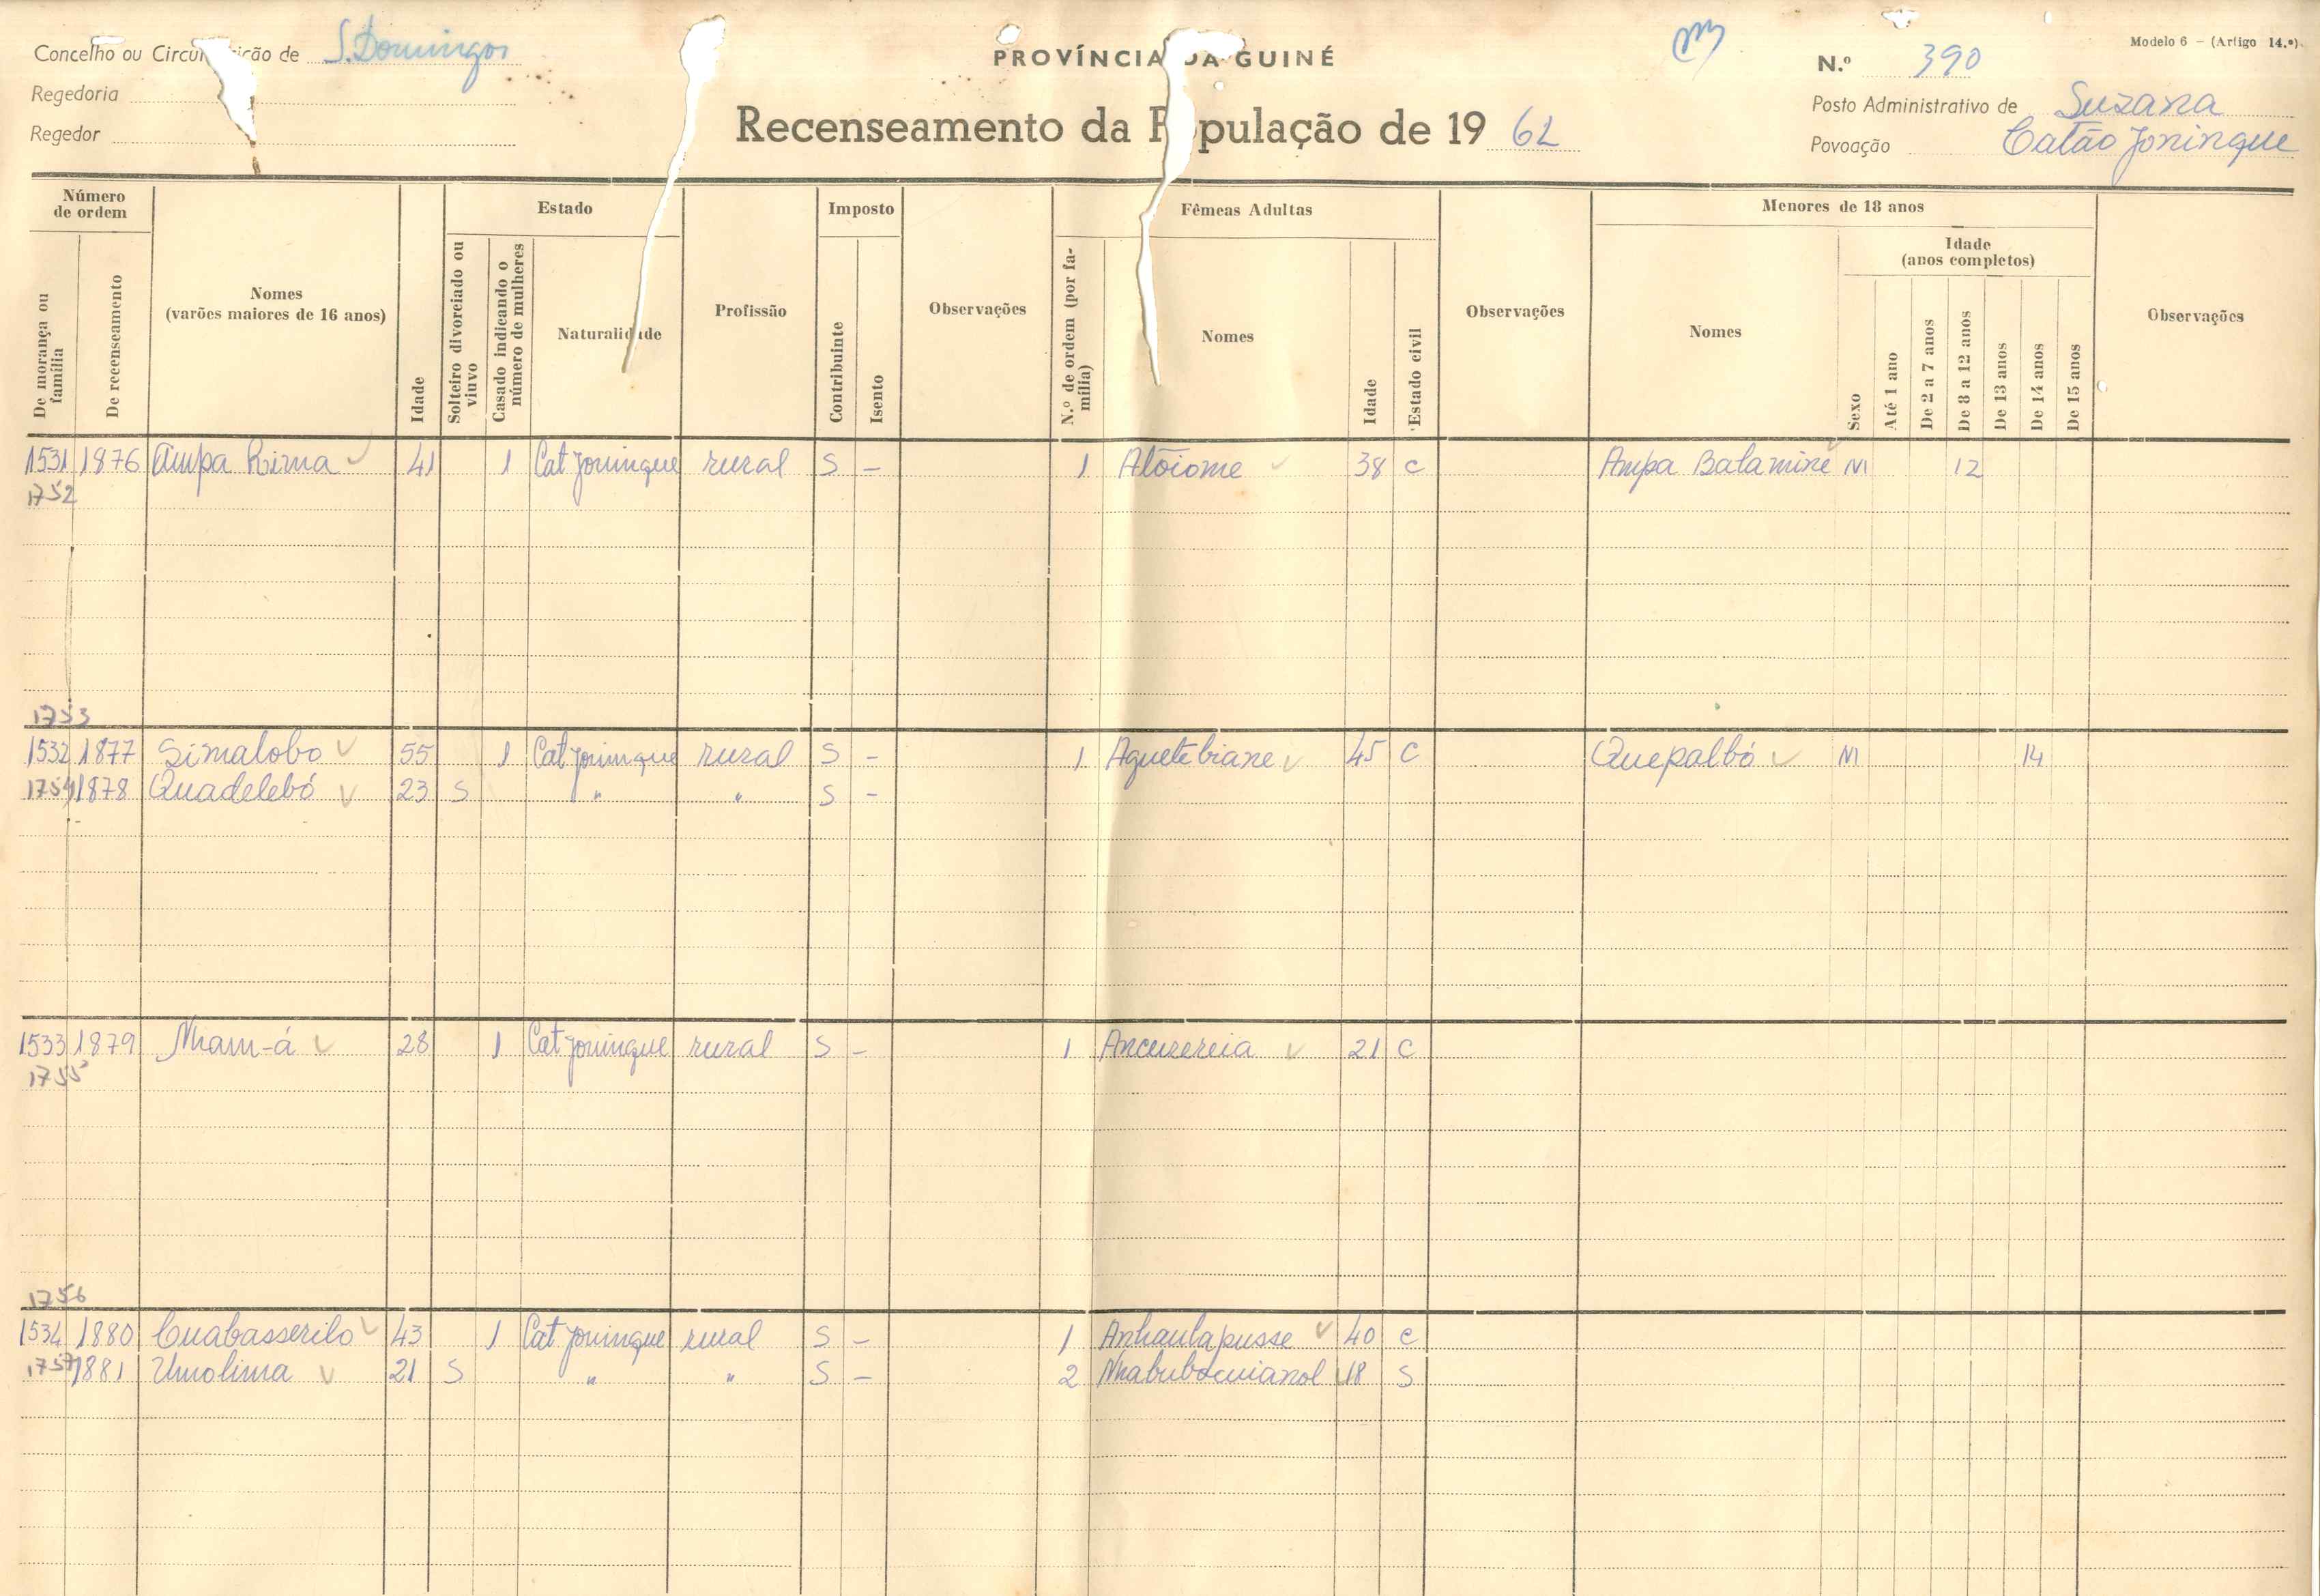 Modelo 6 - (Artigo 14.º)
Concelho ou Circunscrição de S. Domingos
PROVÍNCIA DA GUINÉ
N.º 390
Regedoria
Posto Administrativo de Suzana
Regedor
Recenseamento da População de 19 62
Povoação Catão Joninque
Número de ordem
Estado
Imposto
Fêmeas Adultas
Menores de 18 anos
De morança ou família
De recenseamento
Nomes (varões maiores de 16 anos)
Idade
Solteiro divorciado ou viuvo
Casado indicando o número de mulheres
Naturalidade
Profissão
Contribuinte
Isento
Observações
N.º de ordem (por família)
Nomes
Idade
Estado civil
Observações
Nomes
Sexo
Idade (anos completos)
Até 1 ano
De 2 a 7 anos
De 8 a 12 anos
De 13 anos
De 14 anos
De 15 anos
Observações
1531 1876 Ampa Rima 41 1 Cat Joninque rural S - 1 Atõiome 38 C Ampa Batamine M 12
1752
1753
1532 1877 Simalobo 55 1 Cat Joninque rural S - 1 Aquetebiane 45 C Quepalbó M 14
1754 1878 Quadelebó 23 S " " S -
1533 1879 Nham-á 28 1 Cat Joninque rural S - 1 Ancurereia 21 C
1755
1756
1534 1880 Cuabasserilo 43 1 Cat Joninque rural S - 1 Anhaulapusse 40 C
1757 1881 Umolima 21 S " " S - 2 18 S